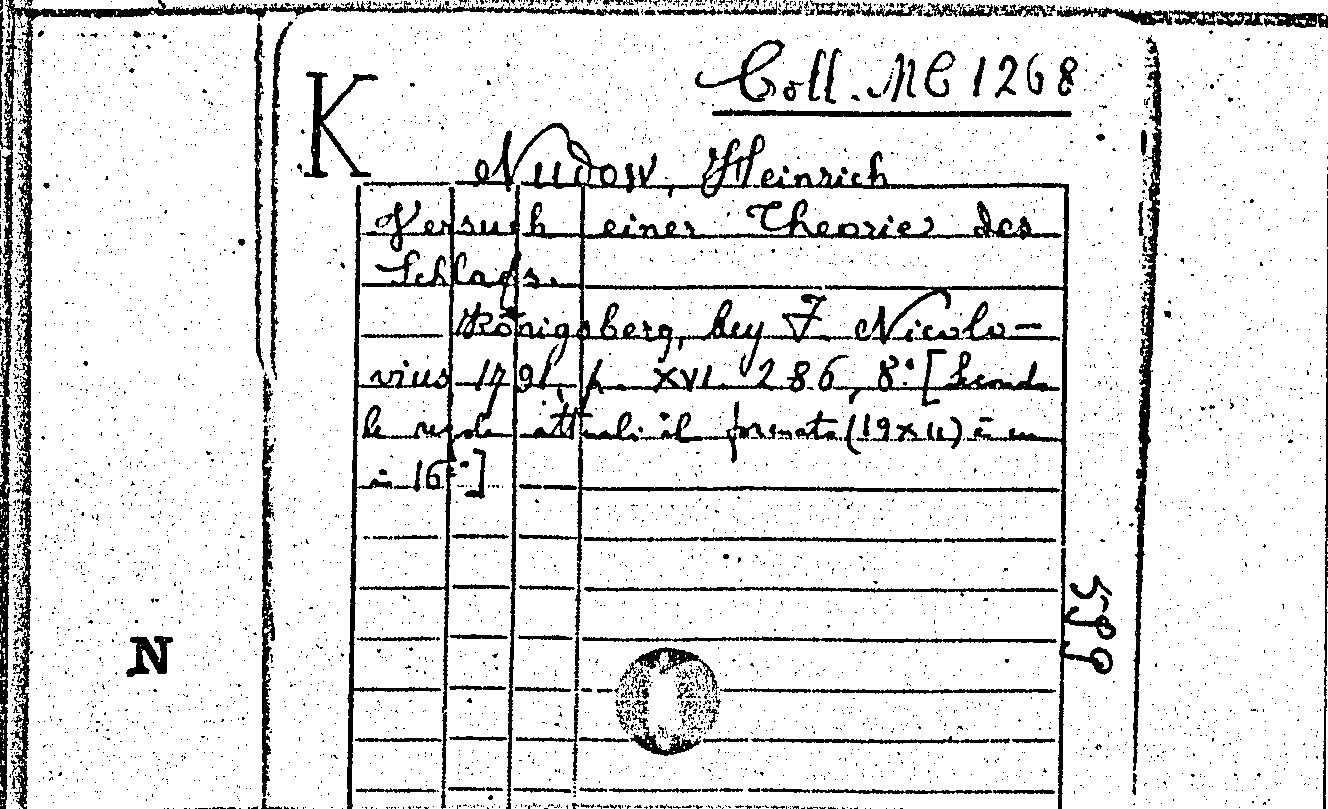 K
Coll. MC 1268
Nudow, Heinrich
Versuch einer Theorie des
Schlafs.
Königsberg, bey F. Nicolo-
vius 1791, p. XVI. 286, 8.° [Secondo
le regole attuali il formato (19x11) è un
in 16°]
N